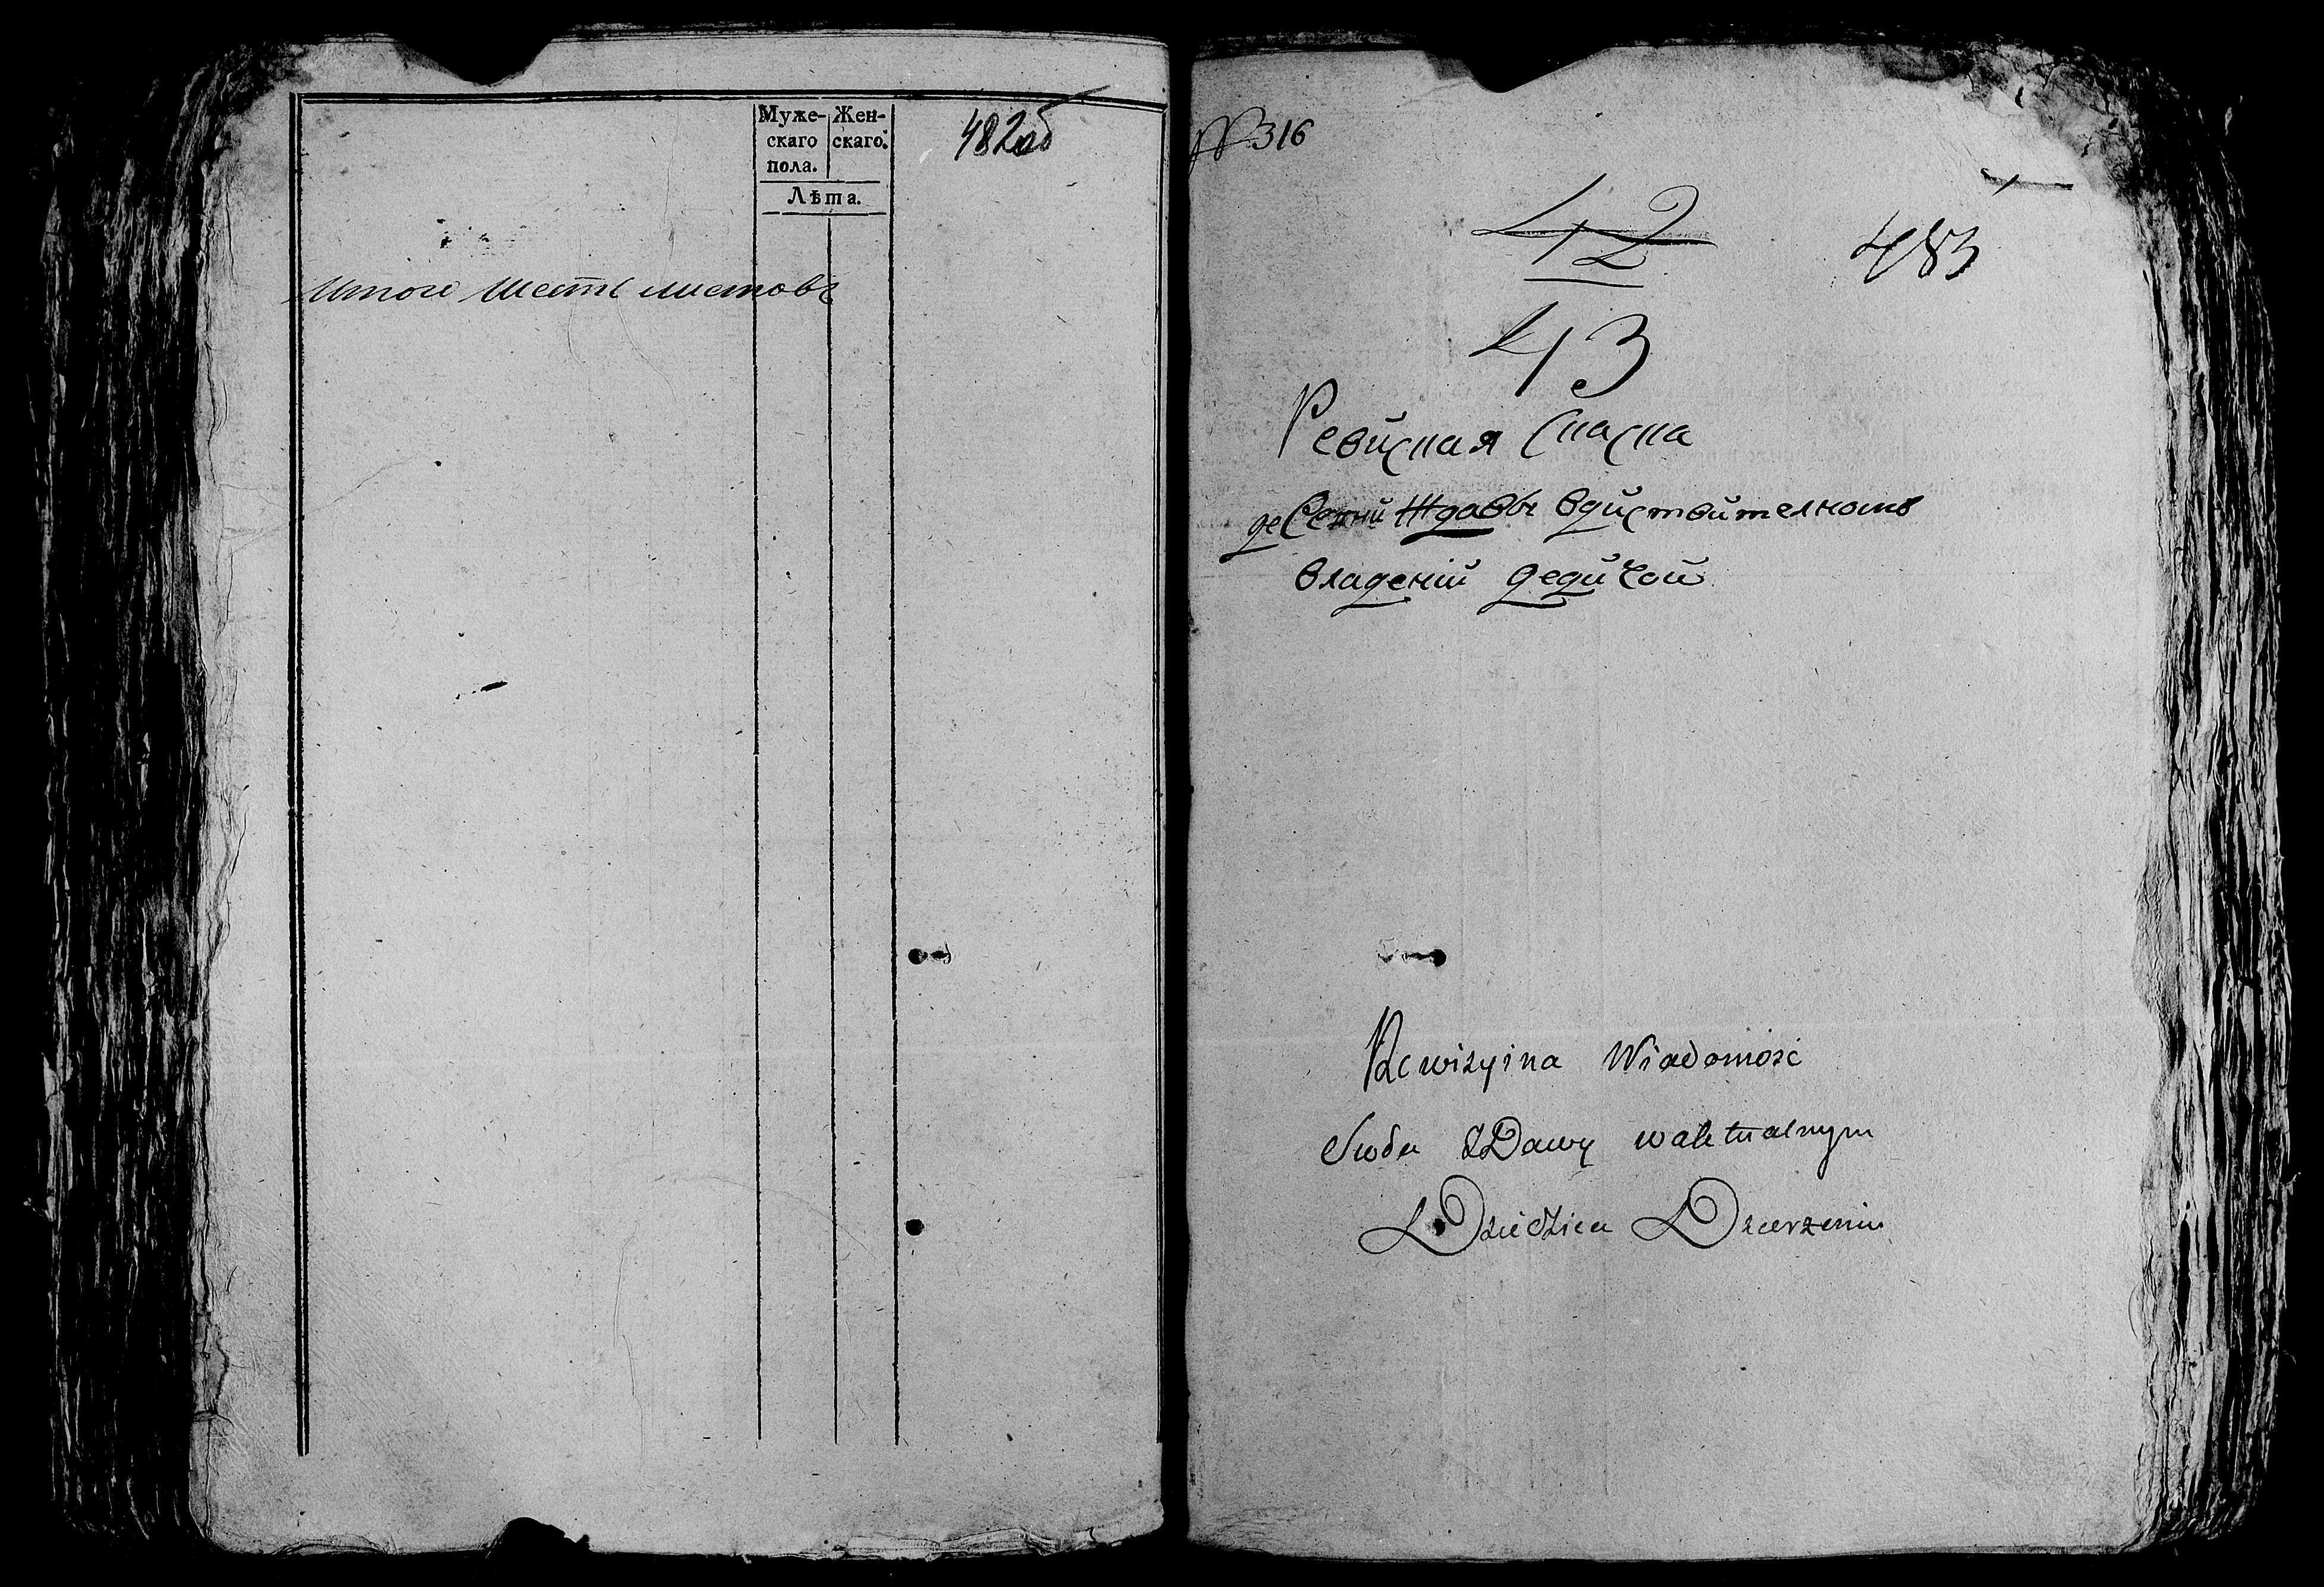 Муже-
скаго
пола.
Жен-
скаго.
Лѣта.
482об
Итого шесть листовъ
№ 316
42
483
43
Ревизкая Сказка
Ждавы вдиствителномъ
владений Дедичой
Rewizyina Wiadomość
Zdawy waktualnym
Dziedzica Dzierzeniu